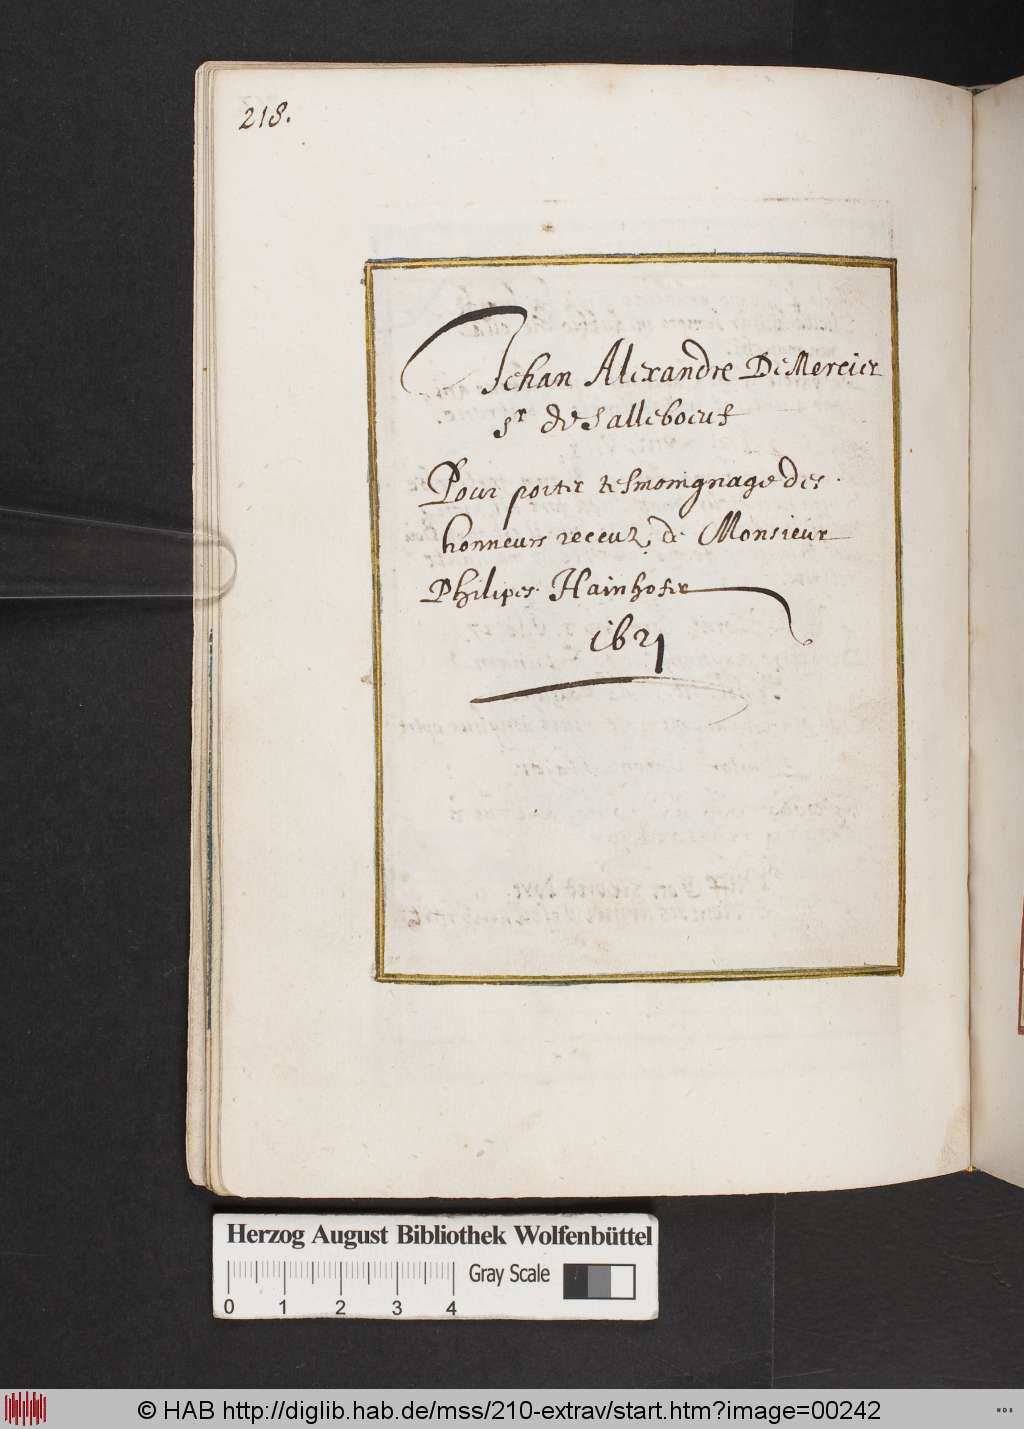 218.
Jehan Alexandre De Mercier
Sr de Salleboeuf
Pour porter tesmoingnage des
honneurs receuz de Monsieur
Philipes Hainhofer
1621
Herzog August Bibliothek Wolfenbüttel
Gray Scale
0 1 2 3 4
© HAB http://diglib.hab.de/mss/210-extrav/start.htm?image=00242